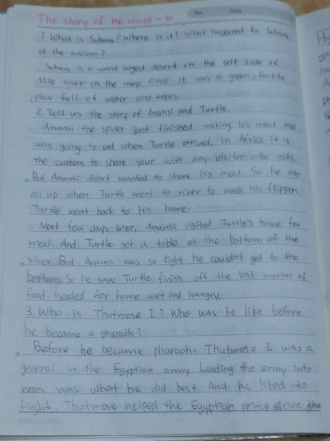 No. Date
The story of the world - 10
1. What is Sahara? Where is it? What happened to Sahara
of the ancient?
Sahara is a world largest desert on the left side of
Nile river on the map. Once it was a green, fertile
place full of water and trees.
2. Tell us the story of Anansi and Turtle.
Anansi the spider just finished making his meal and
was going to eat when Turtle arrived. in Africa it is
the custom to share your with any visitor who asks.
But Anansi didn't wanted to share his meal. So he ate
all up when Turtle went to river to wash his flippers
Turtle went back to his home.
Next few days later, Anansi visited Turtle's home for
meal. And Turtle set a table at the bottom of the
river. But Anansi was so light he couldn't got to the
bottom. So he saw Turtle finish off the last morsels of
food headed for home wet and hungry.
3. Who is Thutmose I? Who was he like before
he became a pharaoh?
Before he became pharaoh, Thutmose I was a
general in the Egyptian army. Leading the army into
was what he did best. And he liked to
fight. Thutmose helped the Egyptian prince drive the